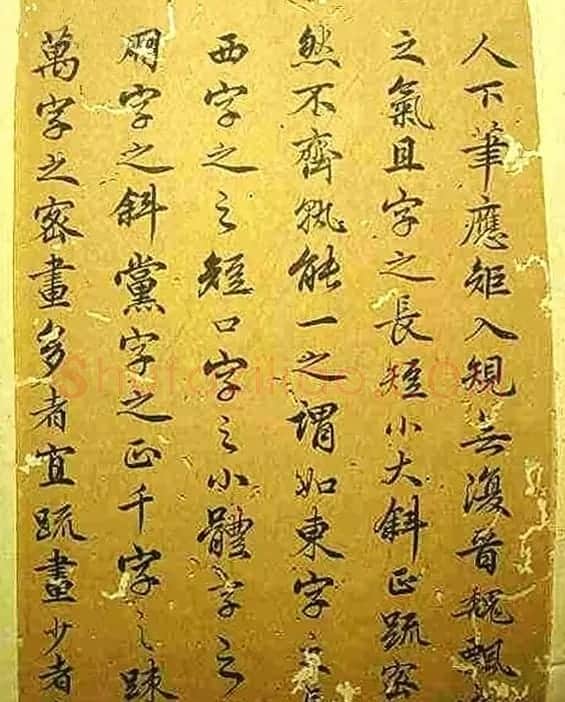 人下筆應矩入規无復晉魏飄
之氣且字之長短小大斜正䟽密
然不齊孰能一之謂如東字之
西字之之短口字之小體字之
朋字之斜黨字之正千字之踈
萬字之密畫多者宜䟽畫少者